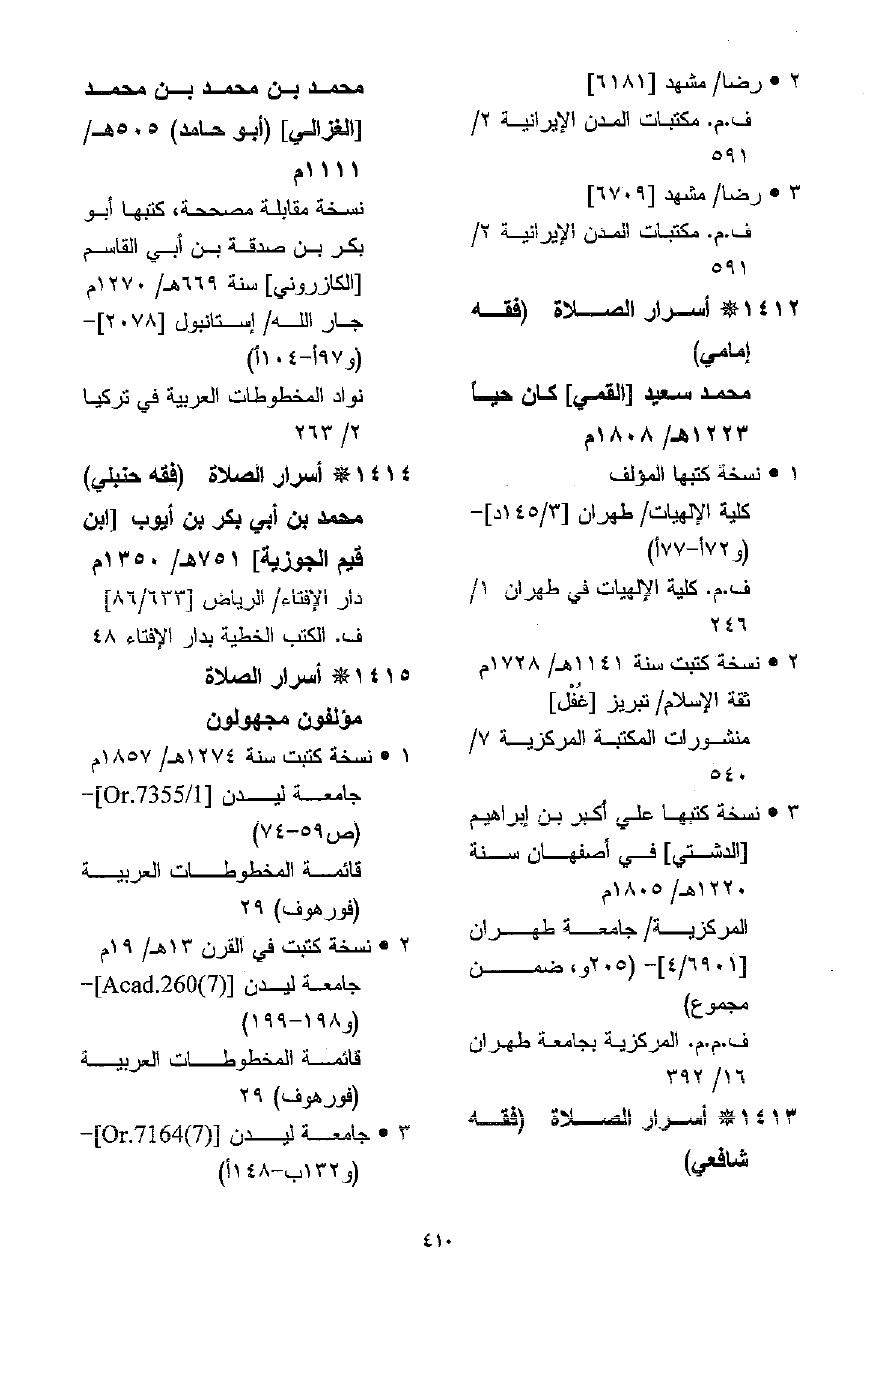 ٢ • رضا/ مشهد [٦١٨١]
ف.م. مكتبات المدن الإيرانية ٢/
٥٩١
٣ • رضا/ مشهد [٦٧٠٩]
ف.م. مكتبات المدن الإيرانية ٢/
٥٩١
١٤١٢* أسرار الصلاة (فقه
إمامي)
محمد سعيد [القمي] كان حياً
١٢٢٣هـ/ ١٨٠٨م
١ • نسخة كتبها المؤلف
كلية الإلهيات/ طهران [١٤٥/٣د]-
(و٧٢أ-٧٧أ)
ف.م. كلية الإلهيات في طهران ١/
٢٤٦
٢ • نسخة كتبت سنة ١١٤١هـ/ ١٧٢٨م
ثقة الإسلام/ تبريز [غُفْل]
منشورات المكتبة المركزية ٧/
٥٤٠
٣ • نسخة كتبها علي أكبر بن إبراهيم
[الدشتي] في أصفهان سنة
١٢٢٠هـ/ ١٨٠٥م
المركزية/ جامعة طهران
[٤/٦٩٠١]- (٢٠٥و، ضمن
مجموع)
ف.م.م. المركزية بجامعة طهران
١٦/ ٣٩٢
١٤١٣* أسرار الصلاة (فقه
شافعي)
محمد بن محمد بن محمد
[الغزالي] (أبو حامد) ٥٠٥هـ/
١١١١م
نسخة مقابلة مصححة، كتبها أبو
بكر بن صدقة بن أبي القاسم
[الكازروني] سنة ٦٦٩هـ/ ١٢٧٠م
جار الله/ إستانبول [٢٠٧٨]-
(و٩٧أ-١٠٤أ)
نواد المخطوطات العربية في تركيا
٢/ ٢٦٣
١٤١٤* أسرار الصلاة (فقه حنبلي)
محمد بن أبي بكر بن أيوب [ابن
قيم الجوزية] ٧٥١هـ/ ١٣٥٠م
دار الإفتاء/ الرياض [٨٦/٦٣٣]
ف. الكتب الخطية بدار الإفتاء ٤٨
١٤١٥* أسرار الصلاة
مؤلفون مجهولون
١ • نسخة كتبت سنة ١٢٧٤هـ/ ١٨٥٧م
جامعة ليدن [Or.7355/1]-
(ص٥٩-٧٤)
قائمة المخطوطات العربية
(فورهوف) ٢٩
٢ • نسخة كتبت في القرن ١٣هـ/ ١٩م
جامعة ليدن [Acad.260(7)]-
(و١٩٨-١٩٩)
قائمة المخطوطات العربية
(فورهوف) ٢٩
٣ • جامعة ليدن [Or.7164(7)]-
(و١٣٢ب-١٤٨أ)
٤١٠